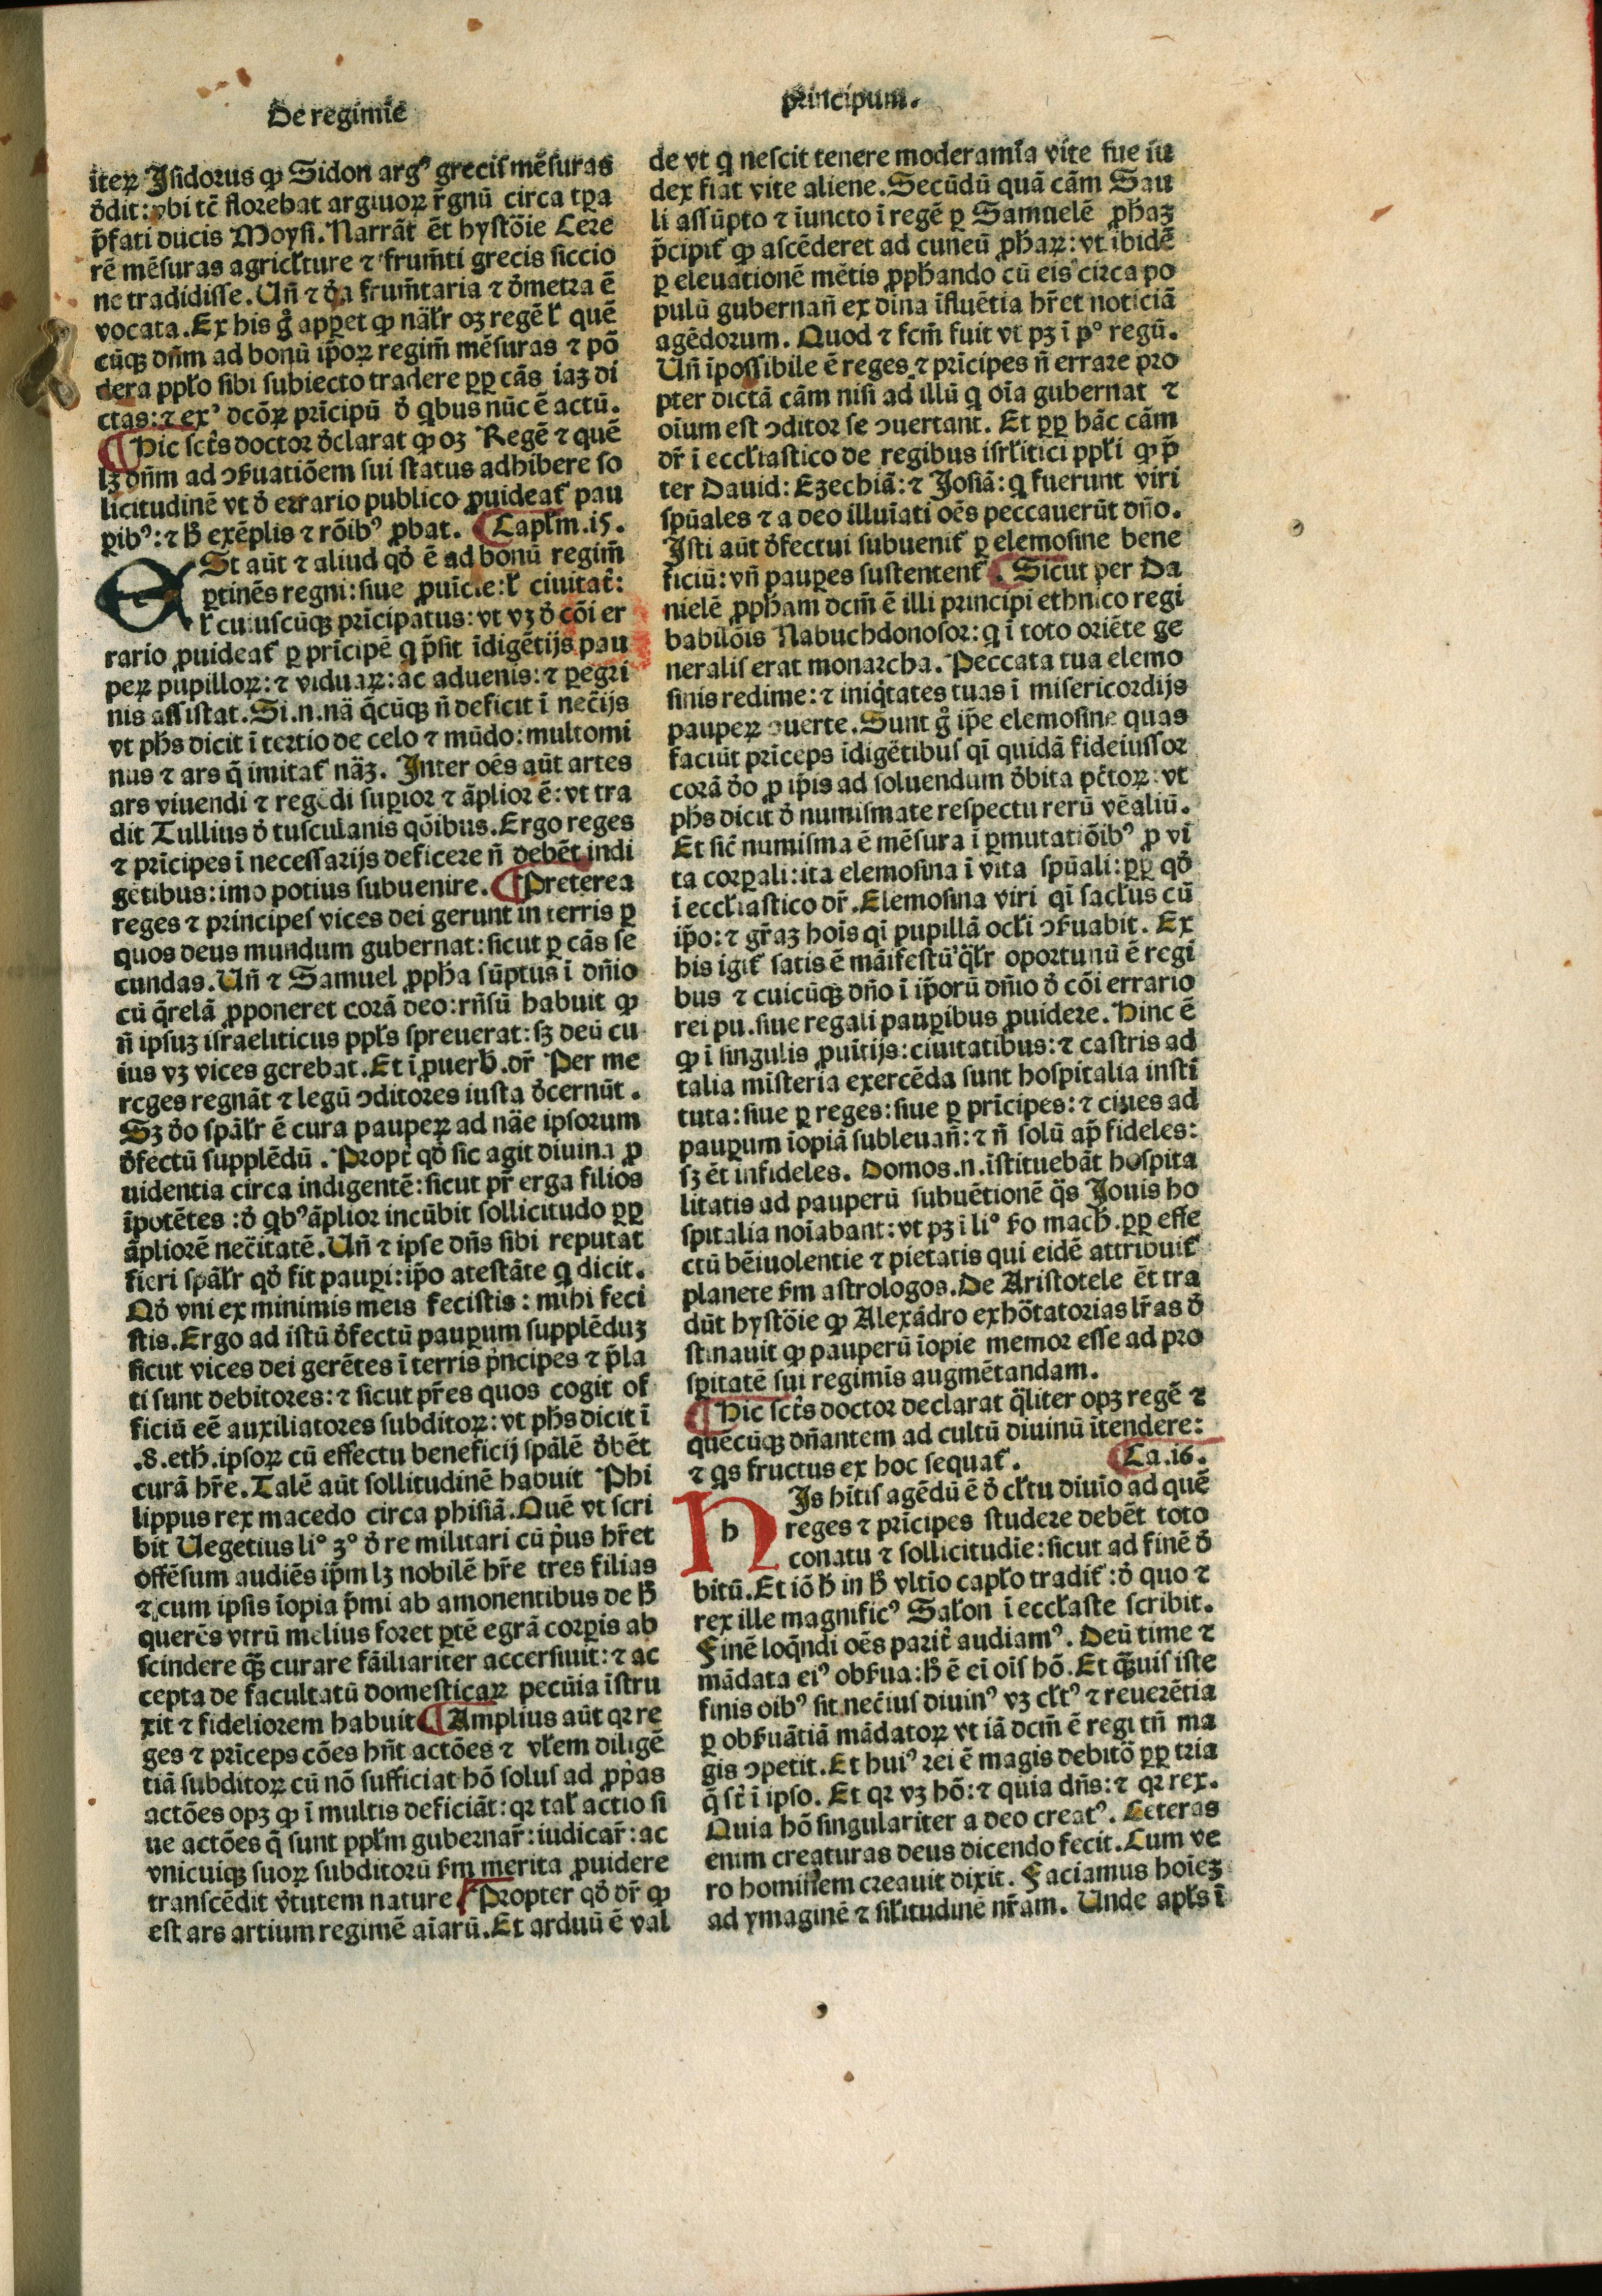 De regimīe
principum.
iteꝝ Isidorus ꝙ Sidon argꝰ grecis mēsuras
ꝺ̄dit: vbi tc̄ florebat argiuoꝝ r̄gnū circa tꝑa
p̄fati ducis Moysi. Narrāt ēt hystōie Cere
rē mēsuras agricl̄ture ⁊ frum̄ti grecis siccio
ne tradidisse. Un̄ ⁊ ꝺ̄a frum̄taria ⁊ ꝺ̄metra ē
vocata. Ex his gͦ apꝑet ꝙ nāl̄r oꝫ regē ł quē
cūqꝫ dn̄m ad bonū ip̄oꝝ regim̄ mēsuras ⁊ pō
dera ppl̄o sibi subiecto tradere ꝓꝑ cās iaꝫ di
ctas: ⁊ exꝰ dc̄ōꝝ prīcipū ꝺ̄ qbus nūc ē actū.
¶ Hic sct̄s doctor ꝺ̄clarat ꝙ oꝫ Regē ⁊ quē
lꝫ dn̄m ad ↄẜuatiōem sui status adhibere so
licitudinē vt ꝺ̄ errario publico ꝓuideat̄ pau
ꝑibꝰ: ⁊ h̄ exēplis ⁊ rōibꝰ ꝓbat. ¶ Capl̄m .15.
ESt aūt ⁊ aliud qꝺ̄ ē ad bonū regim̄
ꝑtinēs regni: siue ꝓuīcie: ł ciuitat̄:
ł cuiuscūqꝫ prīcipatus: vt vꝫ ꝺ̄ cōi er
rario ꝓuideat̄ ꝑ prīcipē q p̄sit īdigētijs pau
peꝝ pupilloꝝ: ⁊ viduaꝝ: ac aduenis: ⁊ ꝑegri
nis assistat. Si .n. nā q̄cūqꝫ n̄ deficit ī nec̄ijs
vt ph̄s dicit ī tertio de celo ⁊ mūdo: multomi
nus ⁊ ars q̄ imitat̄ nāꝫ. Inter oēs aūt artes
ars viuendi ⁊ regēdi suꝑior ⁊ āplior ē: vt tra
dit Tullius ꝺ̄ tusculanis qōibus. Ergo reges
⁊ prīcipes ī necessarijs deficere n̄ debēt indi
gētibus: imo potius subuenire. ¶ Preterea
reges ⁊ principes vices dei gerunt in terris ꝑ
quos deus mundum gubernat: sicut ꝑ cās se
cundas. Un̄ ⁊ Samuel ꝓph̄a sūptus ī dn̄io
cū q̄relā ꝓponeret corā deo: rn̄sū habuit ꝙ
n̄ ipsuꝫ israeliticus ppl̄s spreuerat: sꝫ deū cu
ius vꝫ vices gerebat. Et ī ꝓuerb̄. dr̄ Per me
reges regnāt ⁊ legū ↄditores iusta ꝺ̄cernūt.
Sꝫ ꝺ̄o spāl̄r ē cura pauperꝝ ad nāe ipsorum
ꝺ̄fectū supplēdū. Propt̄ qꝺ̄ sic agit diuina ꝓ
uidentia circa indigentē: sicut pr̄ erga filios
īpotētes: ꝺ̄ qbꝰ āplior incūbit sollicitudo ꝓꝑ
āpliorē nec̄itatē. Un̄ ⁊ ipse dn̄s sibi reputat
fieri spāl̄r qꝺ̄ fit pauꝑi: ip̄o atestāte q dicit.
Qꝺ̄ vni ex minimis meis fecistis: mihi feci
stis. Ergo ad istū ꝺ̄fectū pauꝑum supplēduꝫ
sicut vices dei gerētes ī terris p̄ncipes ⁊ p̄la
ti sunt debitores: ⁊ sicut pr̄es quos cogit of
ficiū eē auxiliatores subditoꝝ: vt ph̄s dicit ī
.8. eth̄. ipsoꝝ cū effectu beneficij spālē ꝺ̄bēt
curā hr̄e. Talē aūt sollitudinē habuit Phi
lippus rex macedo circa phisiā. Quē vt scri
bit Uegetius liͦ 3ͦ ꝺ̄ re militari cū p̄us hr̄et
offēsum audiēs ip̄m lꝫ nobilē hr̄e tres filias
⁊ cum ipsis īopia p̄mi ab amonentibus de h̄
querēs vtrū melius foret ꝑtē egrā corꝑis ab
scindere qꝫ̄ curare fāiliariter accersiuit: ⁊ ac
cepta de facultatū domesticaꝝ pecūia īstru
xit ⁊ fideliorem habuit ¶ Amplius aūt qꝛ re
ges ⁊ prīceps cōes hn̄t actōes ⁊ vl̄em diligē
tiā subditoꝝ cū nō sufficiat hō solus ad ꝓp̄as
actōes opꝫ ꝙ ī multis deficiāt: qꝛ tal̄ actio si
ue actōes q̄ sunt ppl̄m gubernar̄: iudicar̄: ac
vnicuiqꝫ suoꝝ subditorū ẜm merita ꝓuidere
transcēdit v̄tutem nature ¶ Propter qꝺ̄ dr̄ ꝙ
est ars artium regimē aīarū. Et arduū ē val
de vt q nescit tenere moderamīa vite sue iu
dex fiat vite aliene. Secūdū quā cām Sau
li assūpto ⁊ īuncto ī regē ꝑ Samuelē ꝓph̄aꝫ
p̄cipit̄ ꝙ ascēderet ad cuneū ꝓph̄aꝝ: vt ibidē
ꝑ eleuationē mētis ꝓph̄ando cū eis circa po
pulū gubernan̄ ex dīna īfluētia hr̄et noticiā
agēdorum. Quod ⁊ fcm̄ fuit vt pꝫ ī pͦ regū.
Un̄ īpossibile ē reges ⁊ prīcipes n̄ errare pro
pter dictā cām nisi ad illū q oīa gubernat ⁊
oīum est ↄditor se ↄuertant. Et ꝓꝑ hāc cām
dr̄ ī eccl̄iastico de regibus isrl̄itici ppl̄i ꝙ p̄
ter Dauid: Ezechiā: ⁊ Josiā: q fuerunt viri
spūales ⁊ a deo illuīati oēs peccauerūt dn̄o.
Isti aūt ꝺ̄fectui subuenit̄ ꝑ elemosine bene
ficiū: vn̄ pauꝑes sustentent̄. ¶ Sicut per Da
nielē ꝓph̄am dcm̄ ē illi principi ethnico regi
babilōis Nabuchdonosor: q ī toto oriēte ge
neralis erat monarcha. Peccata tua elemo
sinis redime: ⁊ iniq̄tates tuas ī misericordijs
pauperꝝ ↄuerte. Sunt gͦ ip̄e elemosine quas
faciūt prīceps īdigētibus qī quidā fideiussor
corā ꝺ̄o ꝓ ip̄is ad soluendum ꝺ̄bita pc̄toꝝ: vt
ph̄s dicit ꝺ̄ numismate respectu rerū vēaliū.
Et sic̄ numisma ē mēsura ī ꝑmutatiōibꝰ ꝓ vi
ta corꝑali: ita elemosina ī vita spūali: ꝓꝑ qꝺ̄
ī eccl̄iastico dr̄. Elemosina viri qī sacl̄us cū
ip̄o: ⁊ gr̄aꝫ hoīs qī pupillā ocl̄i ↄẜuabit. Ex
his igit̄ satis ē māifestū q̄l̄r oportunū ē regi
bus ⁊ cuicūqꝫ dn̄o ī ip̄orū dn̄io ꝺ̄ cōi errario
rei pu. siue regali pauꝑibus ꝓuidere. Hinc ē
ꝙ ī singulis ꝓuītijs: ciuitatibus: ⁊ castris ad
talia misteria exercēda sunt hospitalia insti
tuta: siue ꝑ reges: siue ꝑ prīcipes: ⁊ ciues ad
pauꝑum īopiā subleuan̄: ⁊ n̄ solū ap̄ fideles:
sꝫ ēt infideles. Domos .n. īstituebāt hospita
litatis ad pauperū subuētionē q̄s Jouis ho
spitalia noīabant: vt pꝫ ī liͦ ẜo mach̄. ꝓꝑ effe
ctū bēiuolentie ⁊ pietatis qui eidē attribuit̄
planete ẜm astrologos. De Aristotele ēt tra
dūt hystōie ꝙ Alexādro exhōtatorias lr̄as ꝺ̄
stinauit ꝙ pauperū īopie memor esse ad pro
sꝑitatē sui regimīs augmētandam.
¶ Hic sct̄s doctor declarat q̄liter opꝫ regē ⁊
quēcūqꝫ dn̄antem ad cultū diuinū ītendere:
⁊ qs fructus ex hoc sequat̄. ¶ Ca. 16.
h
HIs hītis agēdū ē ꝺ̄ cl̄tu diuīo ad quē
reges ⁊ prīcipes studere debēt toto
conatu ⁊ sollicitudīe: sicut ad finē ꝺ̄
bitū. Et iō h̄ in h̄ vltīo capl̄o tradit̄: ꝺ̄ quo ⁊
rex ille magnificꝰ Sal̄on ī eccl̄aste scribit.
Finē loq̄ndi oēs parit̄ audiamꝰ. Deū time ⁊
mādata eiꝰ obẜua: h̄ ē eī oīs hō. Et qꝫ̄uis iste
finis oībꝰ sit nec̄ius diuinꝰ vꝫ cl̄tꝰ ⁊ reuerētia
ꝑ obẜuātiā mādatoꝝ vt iā dcm̄ ē regi tn̄ ma
gis ↄpetit. Et huiꝰ rei ē magis debitō ꝓꝑ tria
q̄ st̄ ī ipso. Et qꝛ vꝫ hō: ⁊ quia dn̄s: ⁊ qꝛ rex.
Quia hō singulariter a deo creatꝰ. Ceteras
enim creaturas deus dicendo fecit. Cum ve
ro hominem creauit dixit. Faciamus hoīeꝫ
ad ymaginē ⁊ sil̄itudinē nr̄am. Unde apl̄s ī